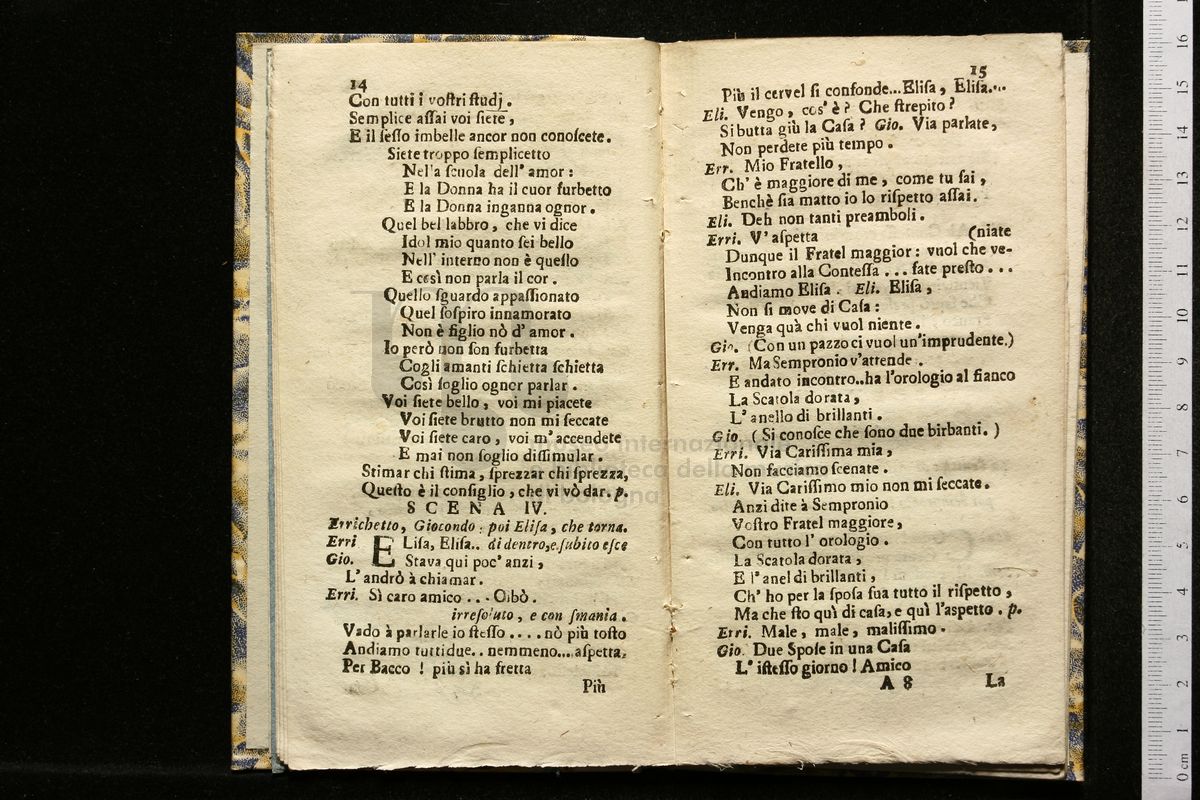 14
Con tutti i voſtri ſtudj.
Semplice aſſai voi ſiete,
E il ſeſſo imbelle ancor non conoſcete.
Siete troppo ſemplicetto
Nel'a ſcuola dell' amor:
E la Donna ha il cuor furbetto
E la Donna inganna ognor.
Quel bel labbro, che vi dice
Idol mio quanto ſei bello
Nell' interno non è quello
E così non parla il cor.
Quello ſguardo appaſſionato
Quel ſoſpiro innamorato
Non è figlio nò d' amor.
Io però non ſon furbetta
Cogli amanti ſchietta ſchietta
Così ſoglio ognor parlar.
Voi ſiete bello, voi mi piacete
Voi ſiete brutto non mi ſeccate
Voi ſiete caro, voi m' accendete
E mai non ſoglio diſſimular.
Stimar chi ſtima, ſprezzar chi ſprezza,
Queſto è il conſiglio, che vi vò dar. p.
SCENA IV.
Errichetto, Giocondo: poi Eliſa, che torna.
Erri ELiſa, Eliſa.. di dentro, e ſubito eſce
Gio. Stava qui poc' anzi,
L' andrò à chiamar.
Erri. Sì caro amico... Oibò.
irreſoluto, e con ſmania.
Vado à parlarle io ſteſſo.... nò più toſto
Andiamo tutti due.. nemmeno... aſpetta,
Per Bacco! più sì ha fretta
Più
15
Più il cervel ſi confonde... Eliſa, Eliſa...
Eli. Vengo, cos' è? Che ſtrepito?
Si butta giù la Caſa? Gio. Via parlate,
Non perdete più tempo.
Err. Mio Fratello,
Ch' è maggiore di me, come tu ſai,
Benchè ſia matto io lo riſpetto aſſai.
Eli. Deh non tanti preamboli.
Erri. V' aſpetta (niate
Dunque il Fratel maggior: vuol che ve-
Incontro alla Conteſſa... fate preſto...
Andiamo Eliſa. Eli. Eliſa,
Non ſi move di Caſa:
Venga quà chi vuol niente.
Gio. (Con un pazzo ci vuol un' imprudente.)
Err. Ma Sempronio v' attende.
E andato incontro.. ha l'orologio al fianco
La Scatola dorata,
L' anello di brillanti.
Gio. (Si conoſce che ſono due birbanti.)
Erri. Via Cariſſima mia,
Non facciamo ſcenate.
Eli. Via Cariſſimo mio non mi ſeccate.
Anzi dite à Sempronio
Voſtro Fratel maggiore,
Con tutto l' orologio.
La Scatola dorata,
E l' anel di brillanti,
Ch' ho per la ſpoſa ſua tutto il riſpetto,
Ma che ſto quì di caſa, e quì l'aſpetto. p.
Erri. Male, male, maliſſimo.
Gio. Due Spoſe in una Caſa
L' iſteſſo giorno! Amico
A 8 La
0 cm 1 2 3 4 5 6 7 8 9 10 11 12 13 14 15 16